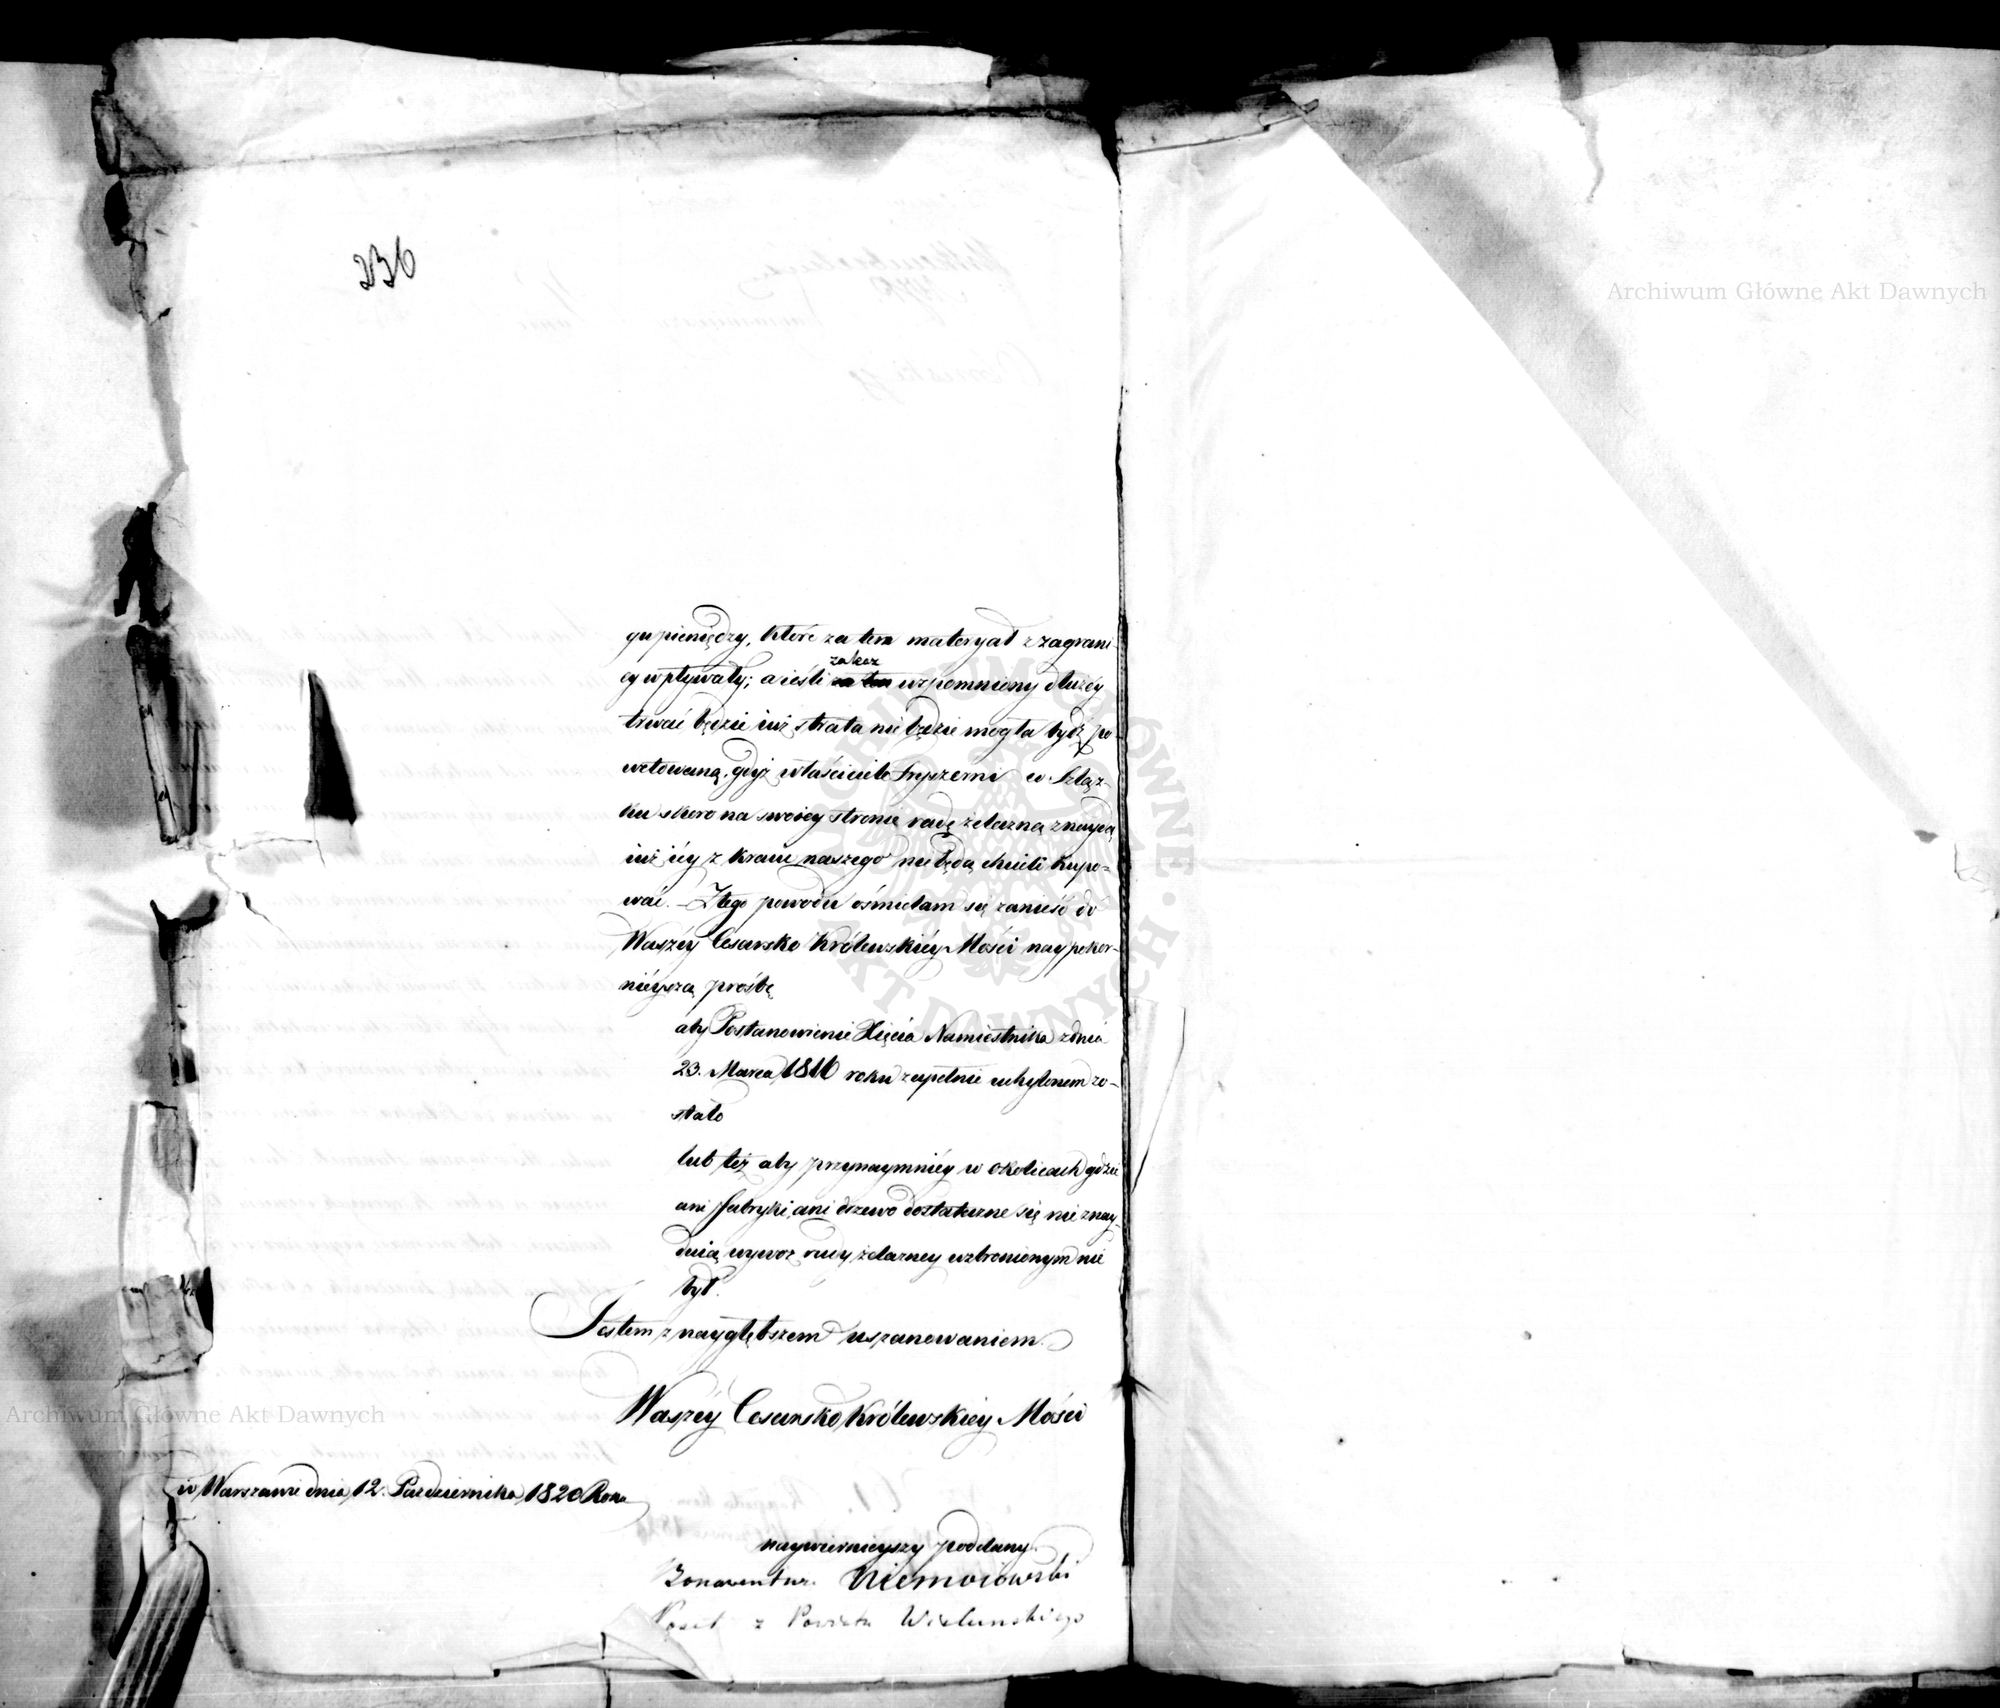 236
gu pieniędzy, które za ten materyał z zagrani-
cy wpływały; a ieśli zakaz wspomniony dłużéy
trwać będzie iuż strata nie będzie mogła bydź po-
wetowaną, gdyż właściciele fryszerni w Szląz-
ku skoro na swoiéy stronie rudę żelazną znaydą
iuż iéy z kraiu naszego nie będą chcieli kupo-
wać. – Z tego powodu ośmielam się zanieść do
Waszéy Cesarsko Królewskiéy Mości naypokor-
nieyszą prośbę
aby Postanowienie Xięcia Namiestnika z dnia
23. Marca 1816 roku zupełnie uchylonem zo-
stało
lub też aby przynaymniéy w okolicach gdzie
ani fabryki, ani drzewo dostateczne się nie znay-
duią, wywoz rudy żelazney wzbronionym nie
był.
Jestem z naygłębszem uszanowaniem.
Waszéy Cesarsko Królewskiey Mości
w Warszawie dnia 12. Października 1820 Roku
naywiernieyszy poddany
Bonawentura Niemoiowski
Poseł z Powiatu Wieluńskiego
Archiwum Główne Akt Dawnych
Archiwum Główne Akt Dawnych
ARCHIWUM GŁÓWNE AKT DAWNYCH